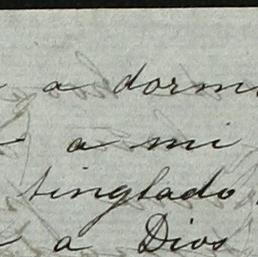 a dormi
a mi
tinglado
a Dios